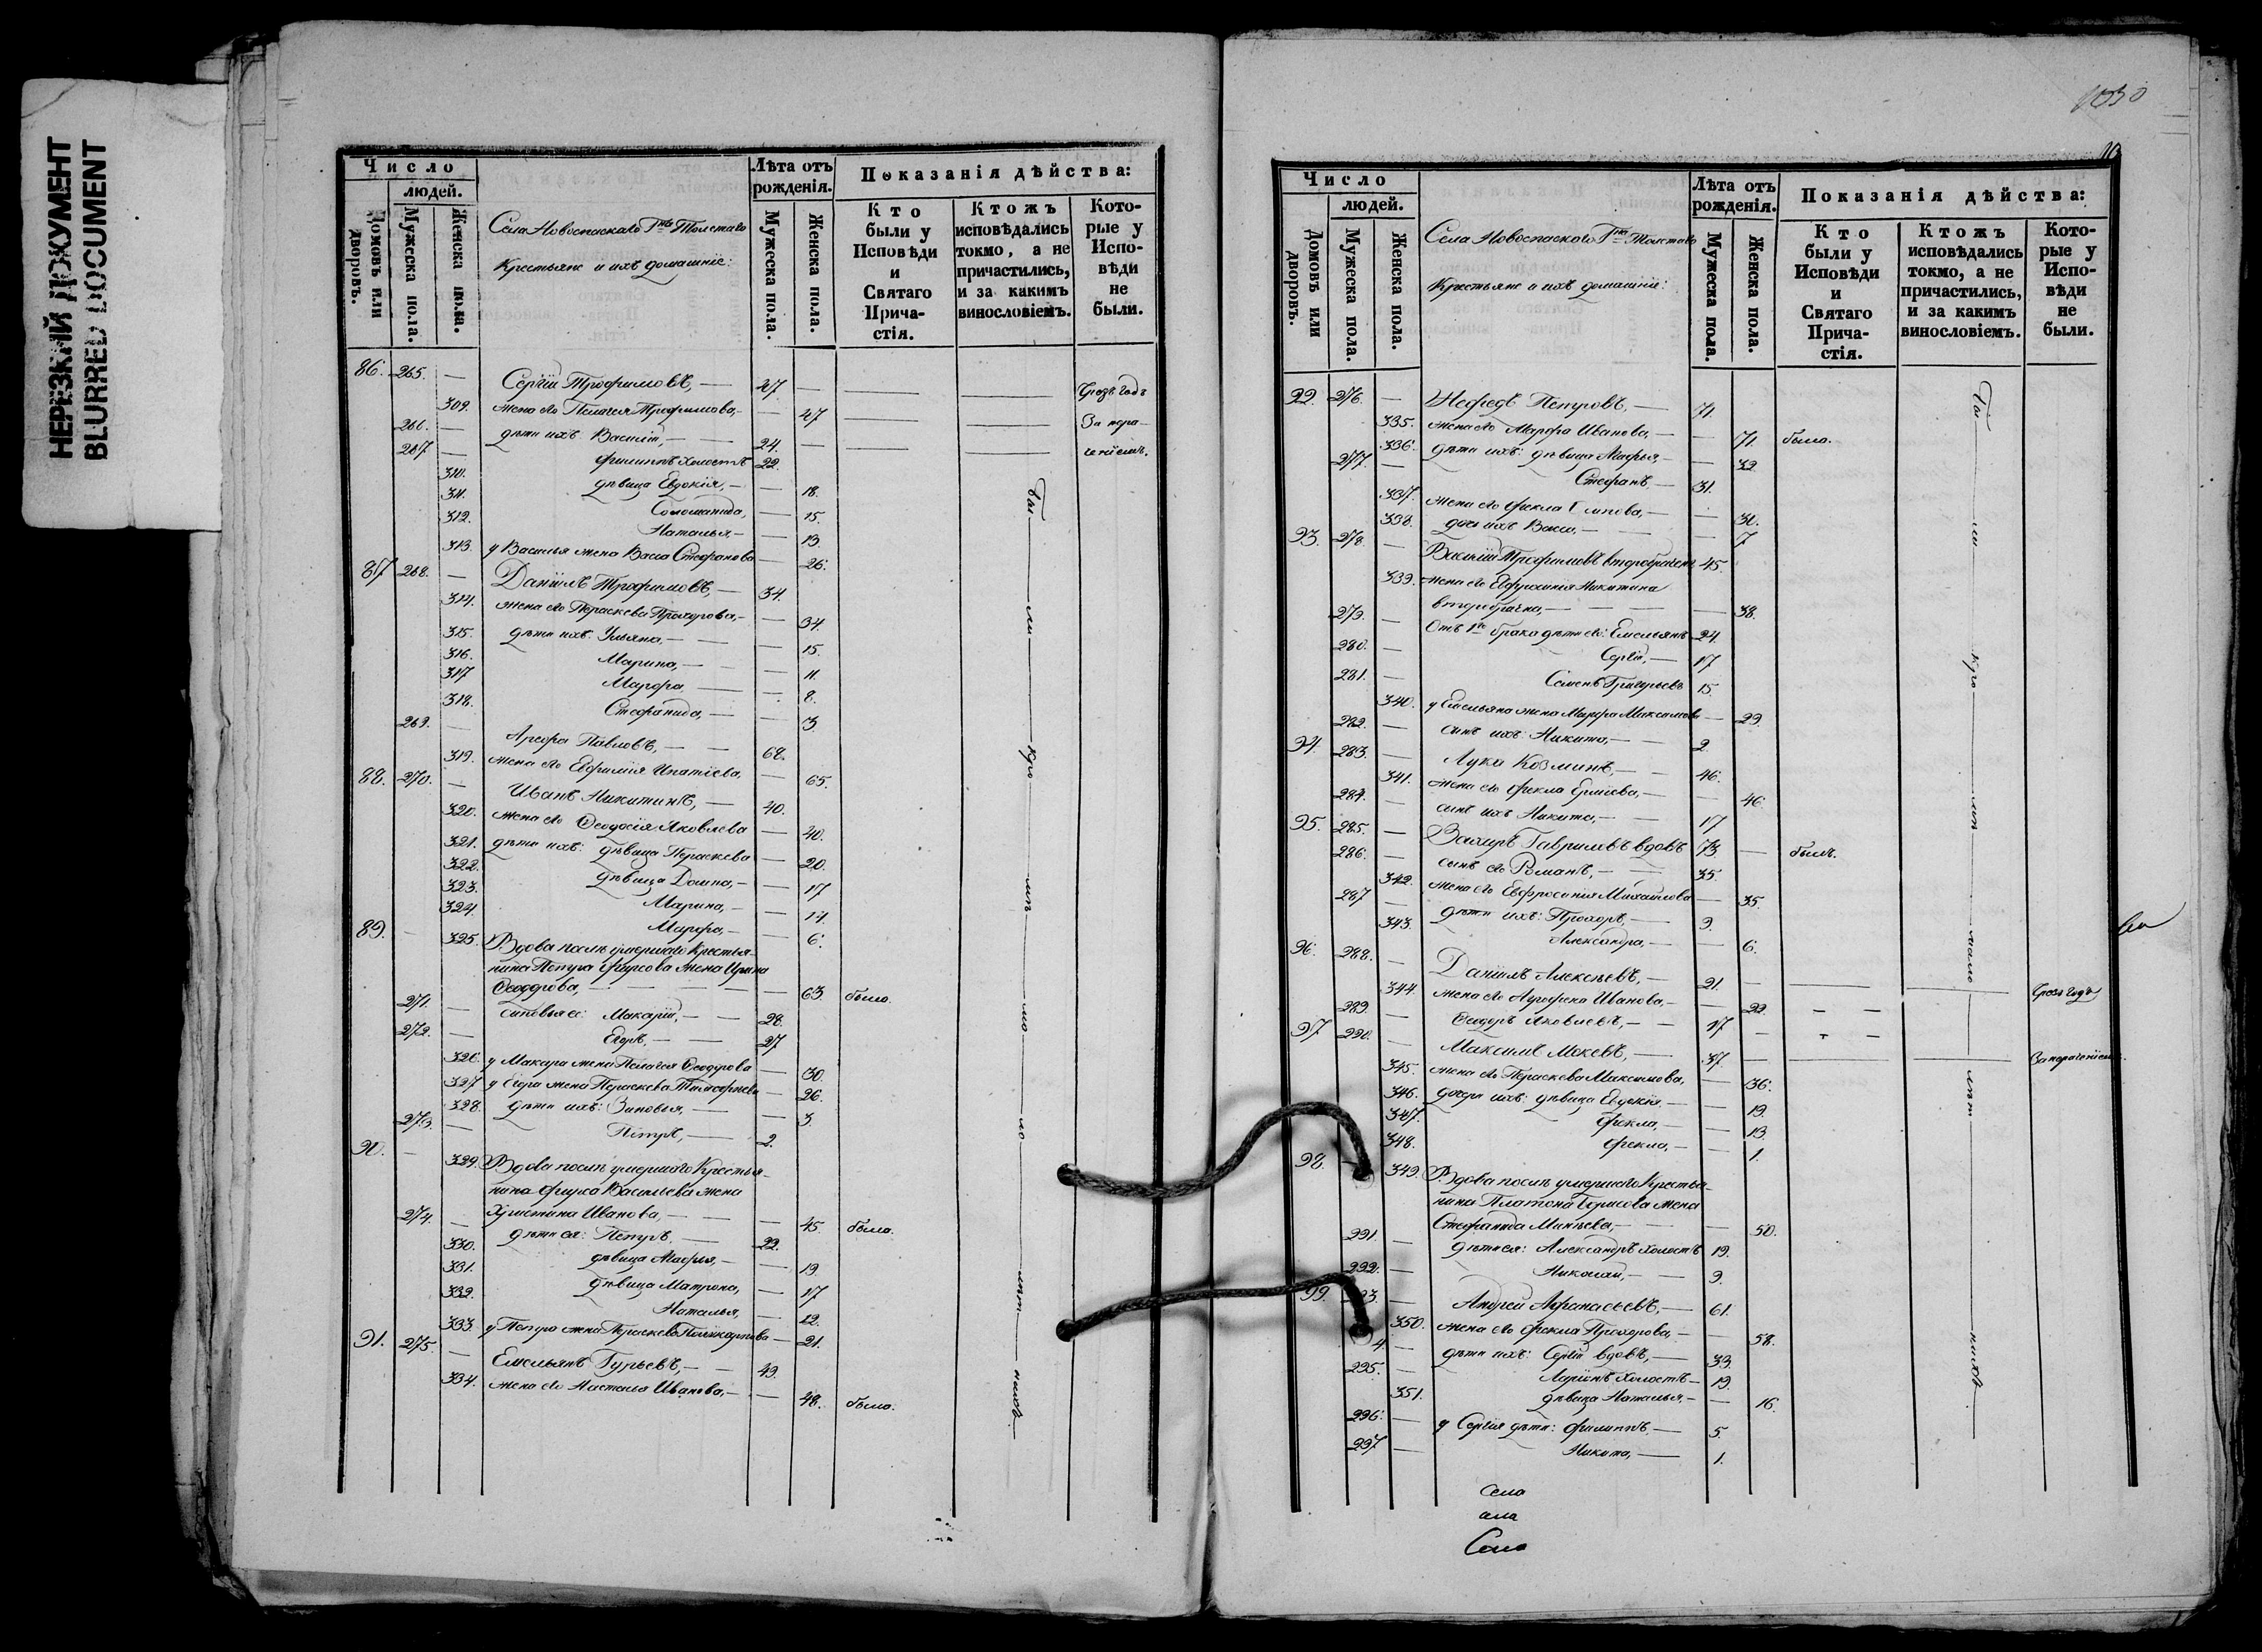 НЕРЕЗКИЙ ДОКУМЕНТ
BLURRED DOCUMENT
Число
людей.
Домовъ или дворовъ.
Мужеска пола.
Женска пола.
Села Новоспаскаго Гна Толстаго
Крестьяне и ихъ домашніе:
Лѣта отъ рожденія.
Мужеска пола.
Женска пола.
Показанія дѣйства:
Кто были у Исповѣди и Святаго Причастія.
Ктожъ исповѣдались токмо, а не причастились, и за какимъ винословіемъ.
Которые у Исповѣди не были.
86. 265. — Сергій Трофимовъ, — 47 —
309. жена его Пелагея Трофимова, — 47
266. — дѣти ихъ Василій, — 24. —
267 — Филиппъ холостъ 22.
310. дѣвица Евдокія, — 18.
311. Соломанида, — 15.
312. Наталья — 13
313. у Василья жена Васса Стефанова 26.
87 268. — Даніилъ Трофимовъ, — 34.
314. жена его Параскева Прохорова, — 34.
315. дѣти ихъ: Ульяна, — 15.
316. Марина, — 11.
317 Марфа — 8.
318. Стефанида, — 3
269. — Арефа Павловъ, — 68.
319. жена его Евфимія Ипатіева, — 65.
88. 270. — Иванъ Никитинъ, — 40.
320. жена его Ѳеодосія Яковлева — 40.
321. дѣти ихъ: дѣвица Параскева — 20.
322. дѣвица Домна, — 17
323. Марина, — 14.
324. Марфа, — 6.
89. — 325. Вдова послѣ умершаго Крестья-
нина Петра Фирсова жена Ирина
Ѳеодорова, — 63. была.
271. — сыновья ее: Макарій, — 28.
272. — Егоръ, — 27
326. у Макара жена Пелагея Ѳеодорова — 30.
327 у Егора жена Параскева Тимофеева — 26.
328. дѣти ихъ: Зиновья, — 3.
273. — Петръ, — 2.
90. — 329. Вдова послѣ умершаго Крестья-
нина Фирса Васильева жена
Христина Иванова, — 45. была.
274. — дѣти ея: Петръ, — 22.
330. дѣвица Марья, — 19
331. дѣвица Матрона, — 17
332. Наталья, — 12.
333. у Петра жена Параскева Поликарпова — 21.
91. 275. — Емельянъ Гурьевъ, — 49.
334. жена его Настасья Иванова, — 48. была.
Чрезъ годъ
За нера-
ченіемъ.
1030
Число
людей.
Домовъ или дворовъ.
Мужеска пола.
Женска пола.
Села Новоспаскаго Гна Толстаго
Крестьяне и ихъ домашніе:
Лѣта отъ рожденія.
Мужеска пола.
Женска пола.
Показанія дѣйства:
Кто были у Исповѣди и Святаго Причастія.
Ктожъ исповѣдались токмо, а не причастились, и за какимъ винословіемъ.
Которые у Исповѣди не были.
92. 276. — Нефедъ Петровъ, — 71.
335. жена его Марфа Иванова, — 71. была.
336. дѣти ихъ: дѣвица Марья, — 32
277. — Стефанъ, — 31.
337. жена его Фекла — 30.
338. дочь ихъ Васса, — 7
93. 278. — Василій Трофимовъ второбрачен. 45.
339. жена его Евфросинія Никитина
второбрачна, — 38.
279. — Отъ 1го брака дѣти его: Емельянъ 24.
280. — Сергій, — 17
281. — Семенъ Григорьевъ 15.
340. у Емельяна жена Марфа Максимова — 22.
282. — сынъ ихъ: Никита, — 2
94. 283. — Лука Козминъ, — 46.
341. жена его Фекла Ермиева, — 46.
284. — сынъ ихъ Никита, — 17
95. 285. — Захаръ Гавриловъ вдовъ 73 — былъ.
286. — сынъ его Романъ, — 35.
342. жена его Евфросинія Михайлова — 35.
287 — дѣти ихъ: Прохоръ — 9.
343. Александра, — 6.
96. 288. — Даніилъ Алексѣевъ, — 21. — Чрезъ годъ
344. жена его Агрофена Иванова, — 22.
289. — Ѳеодоръ Яковлевъ, — 17
97 290. — Максимъ Мокеевъ, — 37. — За нераченіемъ.
345. жена его Параскева Максимова, — 36.
346. дочери ихъ: дѣвица Евдокія, — 19.
347. Фекла, — 13.
348. Фекла, — 1.
98. — 349. Вдова послѣ умершаго Крестья-
нина Платона Борисова жена
Стефанида Минѣева, — 50.
291. — дѣти ея: Александръ холостъ 19.
292. — Николай, — 9.
99. 293. — Андрей Афанасьевъ, — 61.
350. жена его Фекла Прохорова, — 58.
4. — дѣти ихъ: Сергій вдовъ, — 33.
295. — Ларіонъ холостъ — 19.
351. дѣвица Наталья, — 16.
296. — у Сергія дѣти: Филиппъ, — 5.
297 — Никита, — 1.
Села
Села